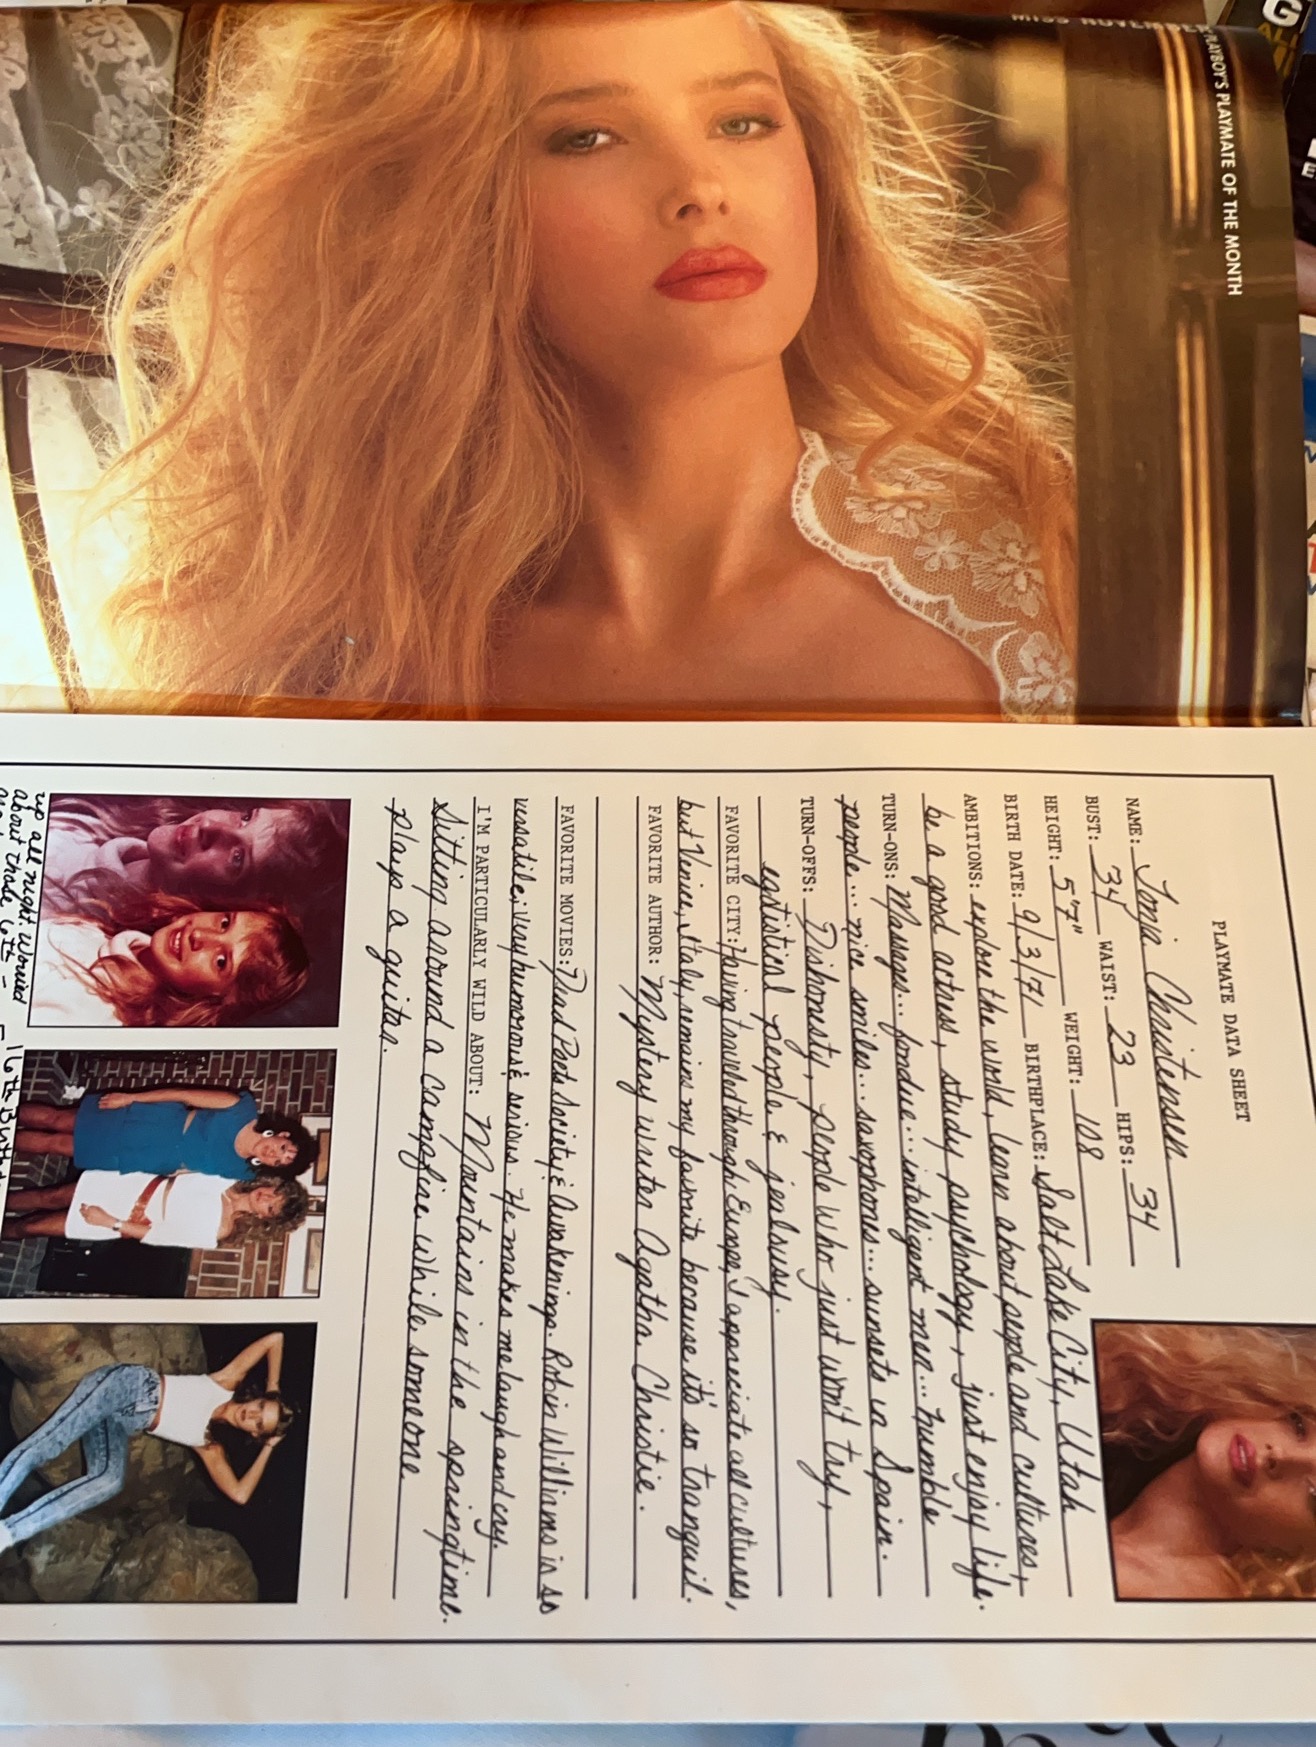 MISS NOVEMBER
PLAYBOY'S PLAYMATE OF THE MONTH
PLAYMATE DATA SHEET
NAME: Tonja Christensen
BUST: 34 WAIST: 23 HIPS: 34
HEIGHT: 5'7" WEIGHT: 108
BIRTH DATE: 9/3/71 BIRTHPLACE: Salt Lake City, Utah
AMBITIONS: explore the world, learn about people and cultures,
be a good actress, study psychology, just enjoy life.
TURN-ONS: Massage... fondue... intelligent men... humble
people... nice smiles... saxophones... sunsets in Spain.
TURN-OFFS: Dishonesty, people who just won't try,
egotistical people & jealousy.
FAVORITE CITY: Having traveled through Europe, I appreciate all cultures,
but Venice, Italy, remains my favorite because it's so tranquil.
FAVORITE AUTHOR: Mystery writer Agatha Christie.
FAVORITE MOVIES: Dead Poets Society & Awakenings. Robin Williams is so
versatile; very humorous & serious. He makes me laugh and cry.
I'M PARTICULARLY WILD ABOUT: Mountains in the springtime.
Sitting around a campfire while someone
plays a guitar.
up all night. Worried
about those 6th-
16th Birthday
G